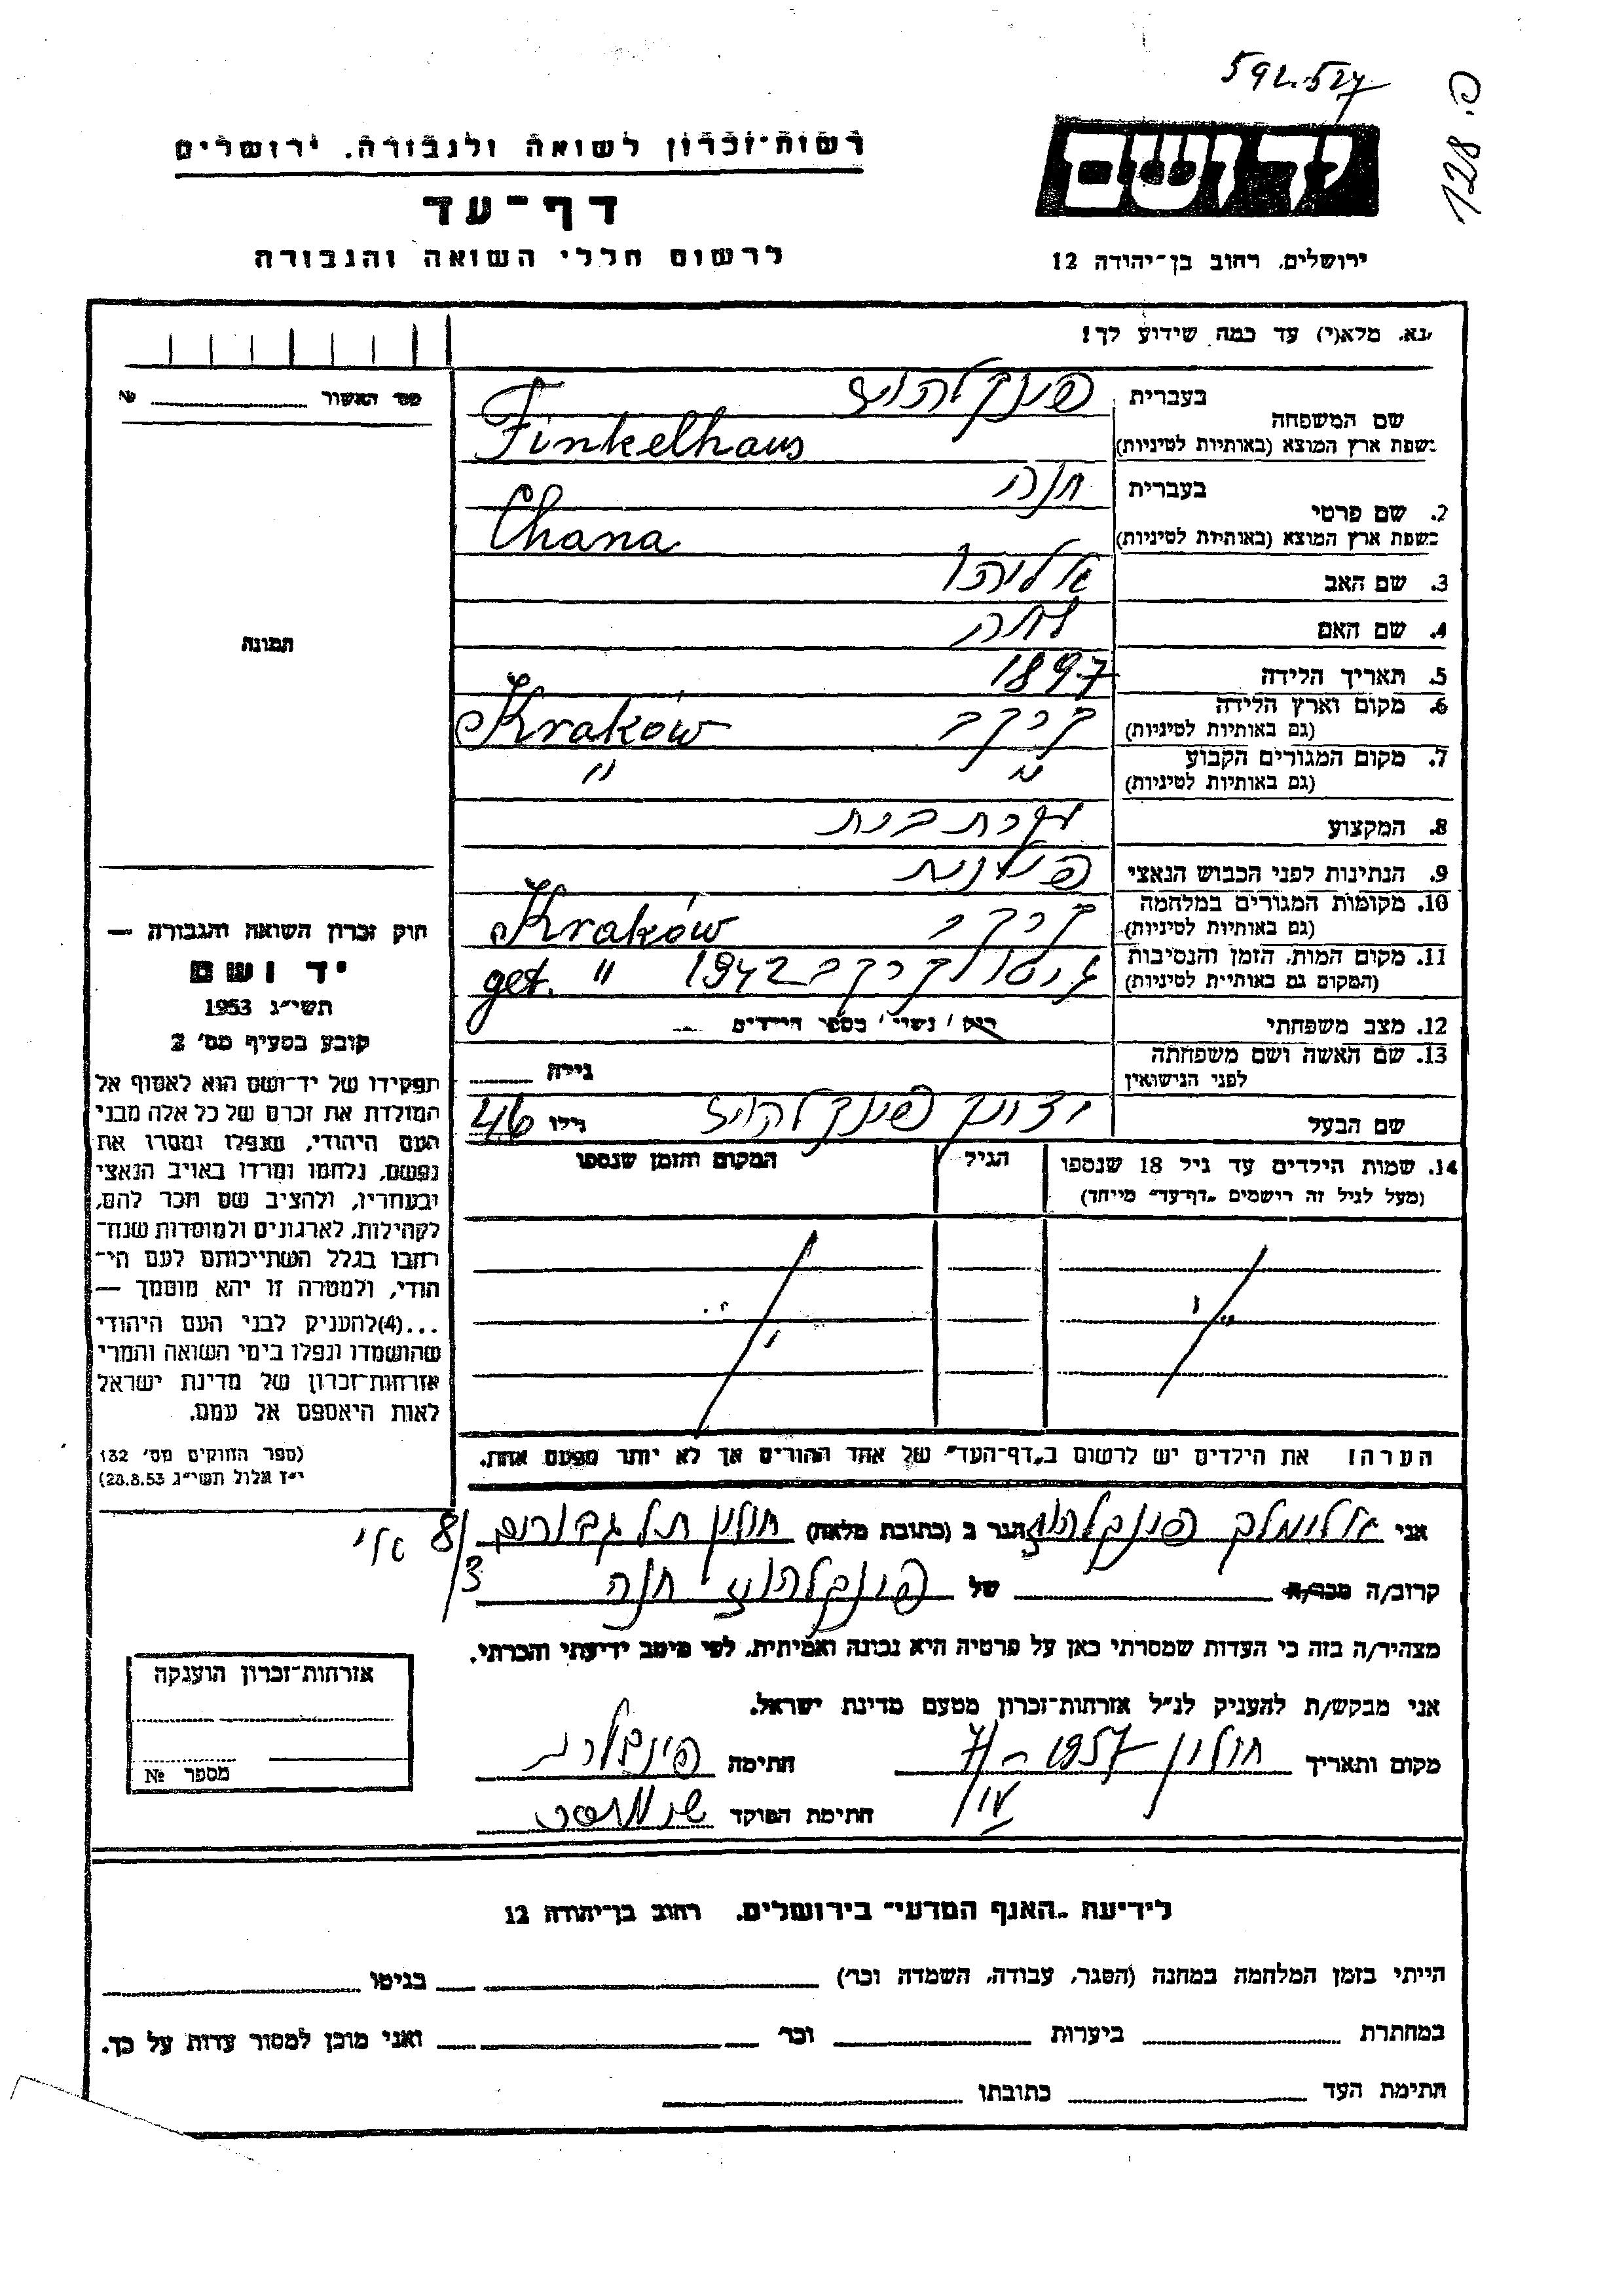 592.527
פ. 128
רשות-זכרון לשואה ולגבורה. ירושלים
יד ושם
דף-עד
לרשום חללי השואה והגבורה
ירושלים. רחוב בן-יהודה 12
נא. מלא(י) עד כמה שידוע לך!
מס' האשור №
שם המשפחה
בעברית פינקלהויז
בשפת ארץ המוצא (באותיות לטיניות) Finkelhaus
2. שם פרטי
בעברית חנה
בשפת ארץ המוצא (באותיות לטיניות) Chana
3. שם האב אליהו
4. שם האם
5. תאריך הלידה 1897
6. מקום וארץ הלידה (גם באותיות לטיניות) קרקב Kraków
7. מקום המגורים הקבוע (גם באותיות לטיניות) " "
8. המקצוע עקרת בית
9. הנתינות לפני הכבוש הנאצי פולנית
10. מקומות המגורים במלחמה (גם באותיות לטיניות) קרקב Kraków
11. מקום המות, הזמן והנסיבות (המקום גם באותיות לטיניות) גיטו קרקב 1942 get. "
12. מצב משפחתי רווק / נשוי / מספר הילדים
13. שם האשה ושם משפחתה לפני הנישואין גילה
שם הבעל פינקלהויז גילו 46
14. שמות הילדים עד גיל 18 שנספו
(מעל לגיל זה רושמים "דף-עד" מייחד)
הגיל
המקום והזמן שנספו
הערה! את הילדים יש לרשום ב"דף-העד" של אחד ההורים אך לא יותר מפעם אחת.
תמונה
חוק זכרון השואה והגבורה —
יד ושם
תשי"ג 1953
קובע בסעיף מס' 2
תפקידו של יד-ושם הוא לאסוף אל
המולדת את זכרם של כל אלה מבני
העם היהודי, שנפלו ומסרו את
נפשם, נלחמו ומרדו באויב הנאצי
ובעוזריו, ולהציב שם וזכר להם,
לקהילות, לארגונים ולמוסדות שנח-
רבו בגלל השתייכותם לעם הי-
הודי, ולמטרה זו יהא מוסמך —
...(4)להעניק לבני העם היהודי
שהושמדו ונפלו בימי השואה והמרי
אזרחות-זכרון של מדינת ישראל
לאות היאספם אל עמם.
(ספר החוקים מס' 132
י"ז אלול תשי"ג 28.8.53)
אני אלימלך פינקלהויז הגר ב (כתובת מלאה) חולון תל גבורים 8/3
קרוב/ה מכר/ה של פינקלהויז חנה
מצהיר/ה בזה כי העדות שמסרתי כאן על פרטיה היא נכונה ואמיתית, לפי מיטב ידיעתי והכרתי.
אני מבקש/ת להעניק לנ"ל אזרחות-זכרון מטעם מדינת ישראל.
מקום ותאריך חולון 1957 חתימה
חתימת הפוקד
אזרחות-זכרון הוענקה
מספר №
לידיעת "האגף המדעי" בירושלים. רחוב בן-יהודה 12
הייתי בזמן המלחמה במחנה (הסגר, עבודה, השמדה וכו') בגיטו
במחתרת ביערות וכו' ואני מוכן למסור עדות על כך.
חתימת העד כתובתו